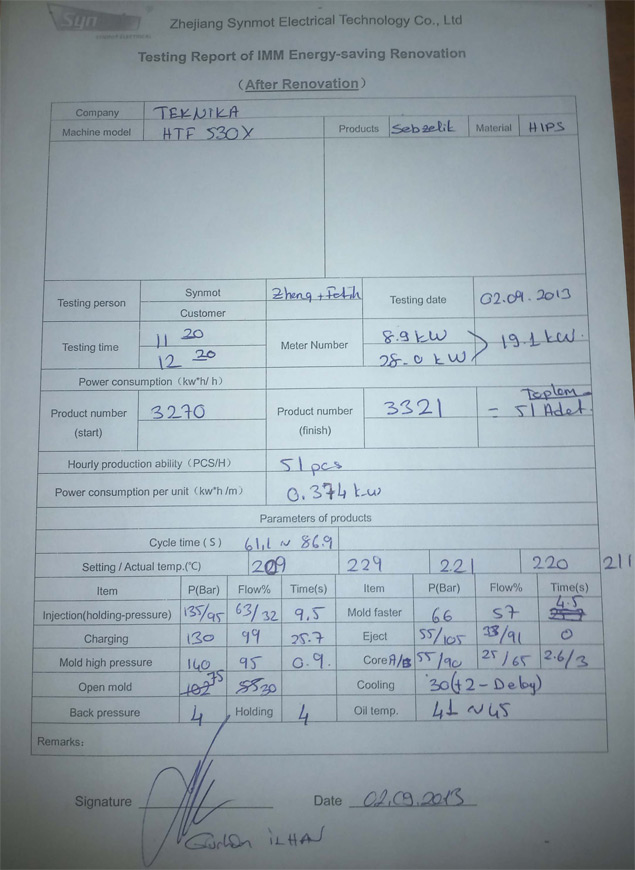 Syn
Zhejiang Synmot Electrical Technology Co., Ltd
Testing Report of IMM Energy-saving Renovation
(After Renovation)
Company TEKNIKA
Machine model HTF 530X Products Sebzelik Material HIPS
Testing person Synmot Zheng + Fatih Testing date 02.09.2013
Customer
Testing time 11 20 Meter Number 8.9 kW 19.1 kW.
12 20 28.0 kW
Power consumption (kw*h/ h)
Product number (start) 3270 Product number (finish) 3321 = Toplam 51 Adet.
Hourly production ability (PCS/H) 51 pcs
Power consumption per unit (kw*h /m) 0.374 kw
Parameters of products
Cycle time ( S ) 61,1 ~ 86.9
Setting / Actual temp.(℃) 209 229 221 220 211
Item P(Bar) Flow% Time(s) Item P(Bar) Flow% Time(s)
Injection(holding-pressure) 135/95 63/32 9,5 Mold faster 66 57 4.5
Charging 130 99 25.7 Eject 55/105 33/91 0
Mold high pressure 140 95 0.9. Core A/B 55/90 25/65 2.6/3
Open mold 102 75 55 30 Cooling 30(+2-Delay)
Back pressure 4 Holding 4 Oil temp. 41 ~ 45
Remarks:
Signature Date 02.09.2013
İLHAN